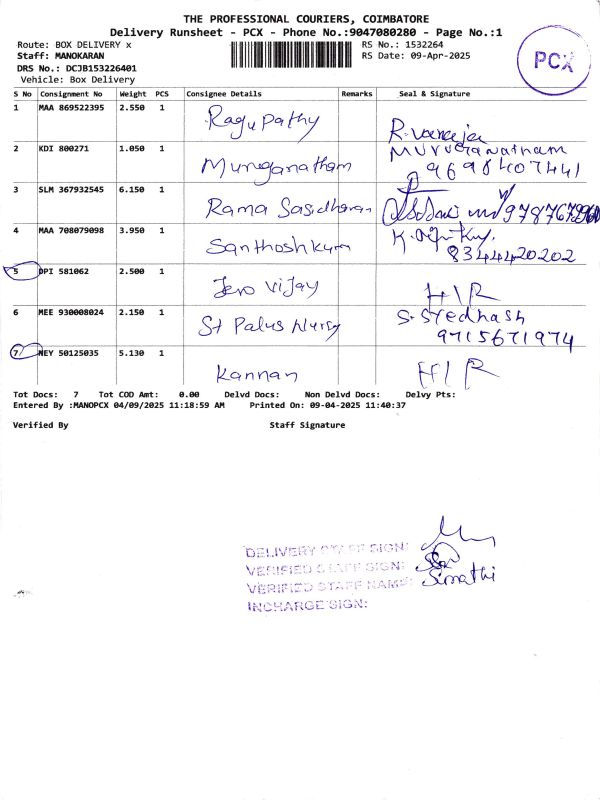 THE PROFESSIONAL COURIERS, COIMBATORE
Delivery Runsheet - PCX - Phone No.:9047080280 - Page No.:1
Route: BOX DELIVERY x RS No.: 1532264
Staff: MANOKARAN RS Date: 09-Apr-2025
DRS No.: DCJB153226401
Vehicle: Box Delivery
PCX
S No Consignment No Weight PCS Consignee Details Remarks Seal & Signature
1 MAA 869522395 2.550 1 Ragupathy R. vanaja
2 KDI 800271 1.050 1 Muruganatham
9698407441
3 SLM 367932545 6.150 1 Rama Sasidharan
4 MAA 708079098 3.950 1 Santhoshkum
8344420202
5 DPI 581062 2.500 1 Jero Vijay H/R
6 MEE 930008024 2.150 1 St Palus Nursy
9715671974
7 NEY 50125035 5.130 1 Kannan H/R
Tot Docs: 7 Tot COD Amt: 0.00 Delvd Docs: Non Delvd Docs: Delvy Pts:
Entered By :MANOPCX 04/09/2025 11:18:59 AM Printed On: 09-04-2025 11:40:37
Verified By Staff Signature
DELIVERY STAFF SIGN:
VERIFIED STAFF SIGN:
VERIFIED STAFF NAME:
INCHARGE SIGN: